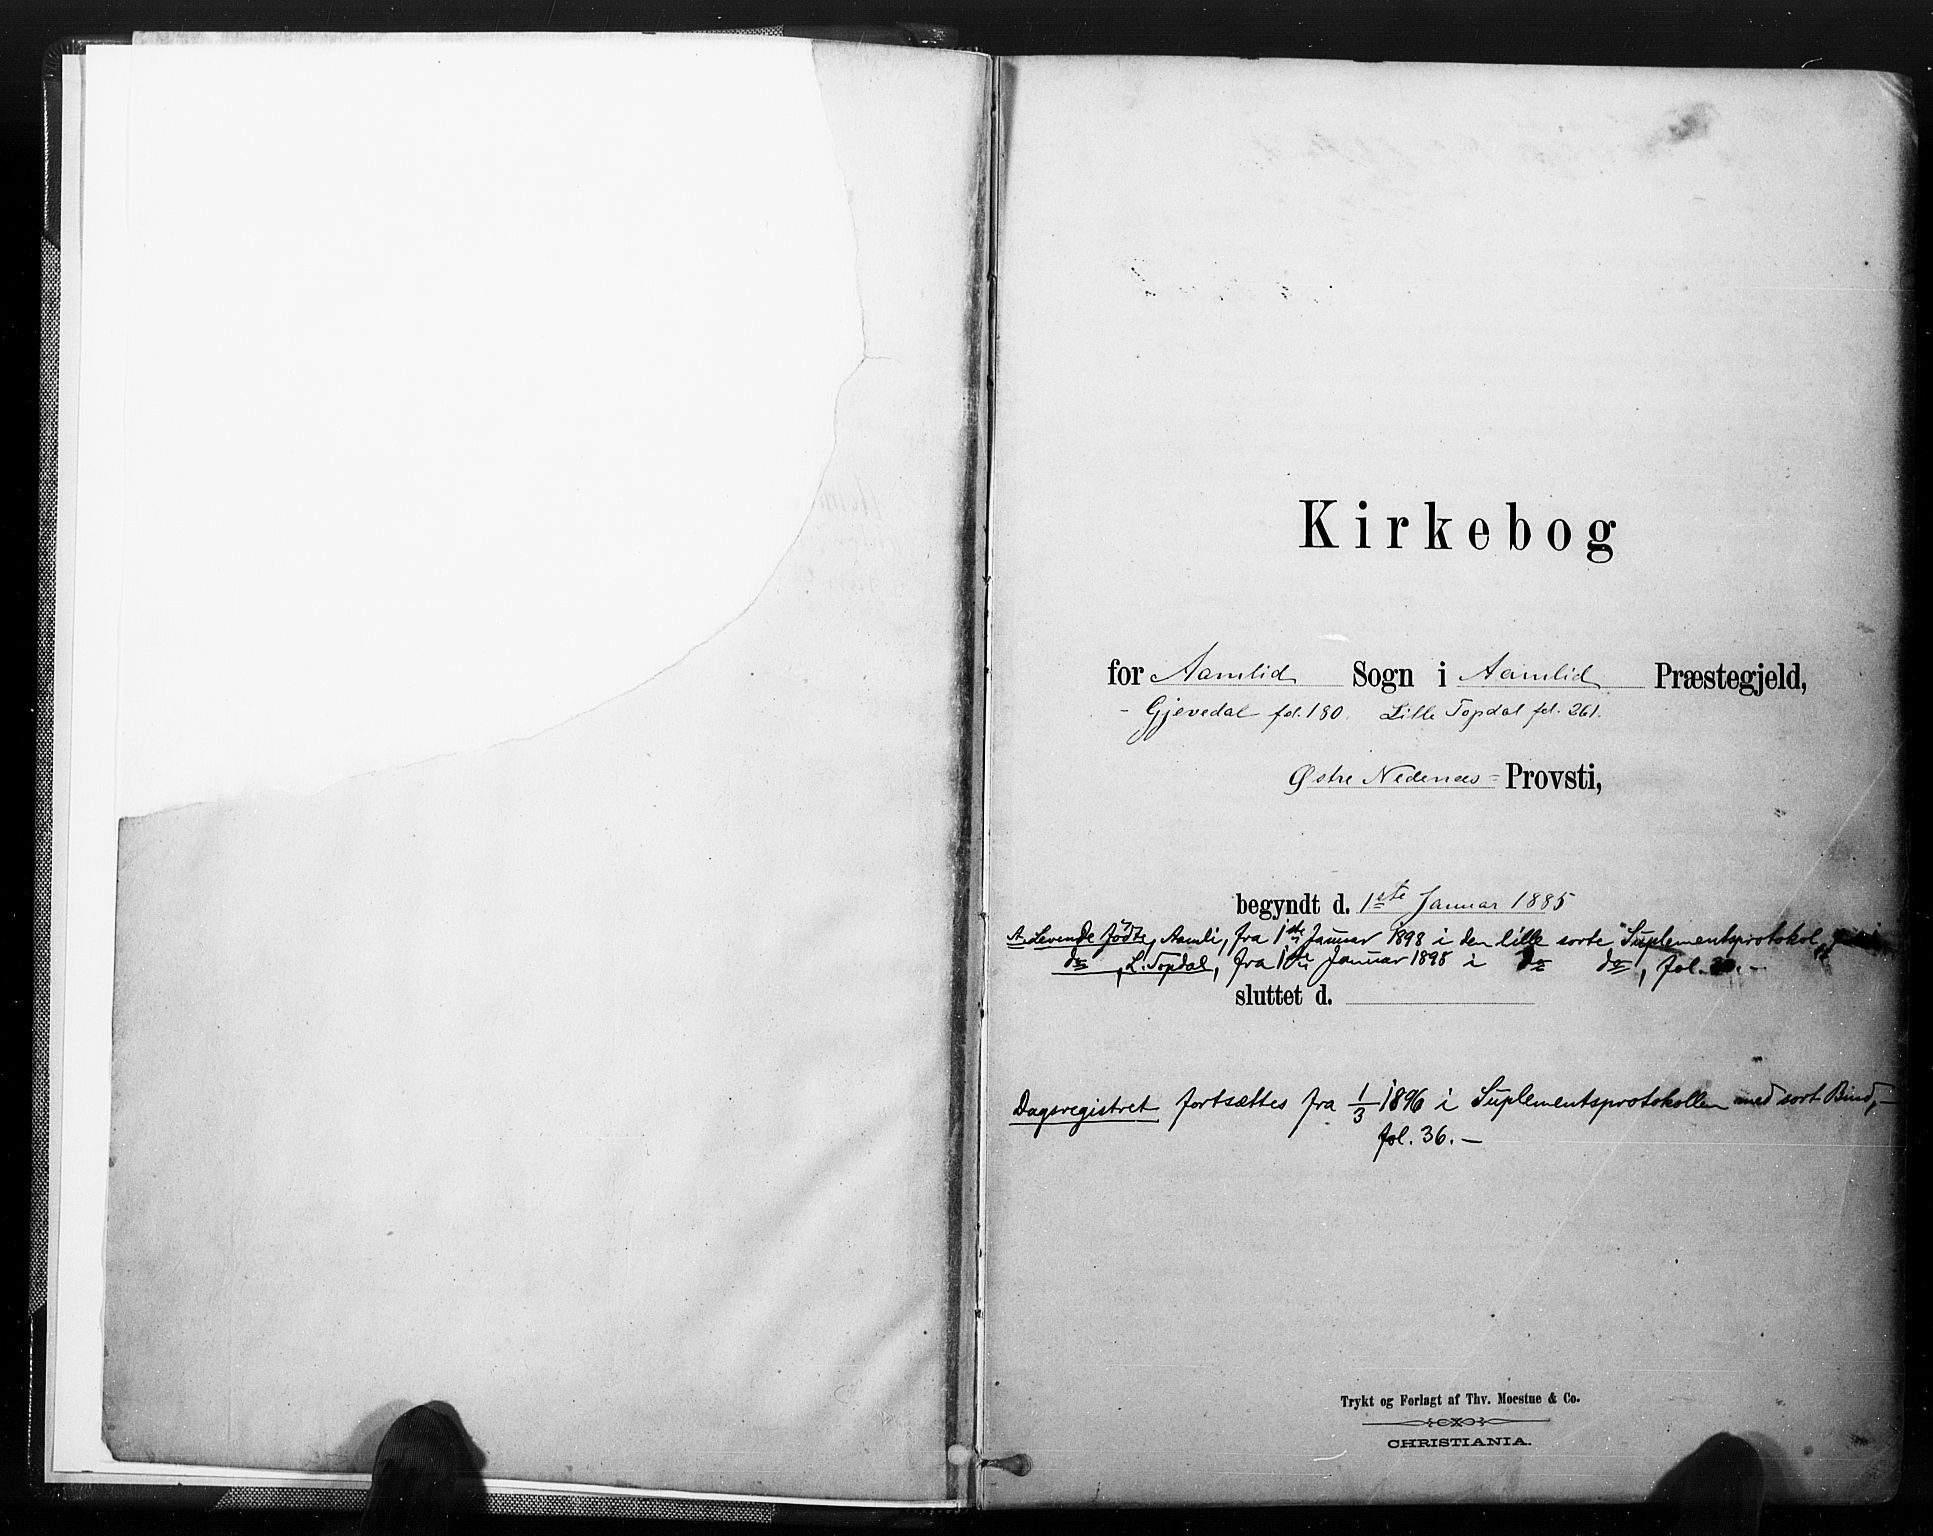 Kirkebog
for Aamlid Sogn i Aamlid Præstegjeld,
- Gjevedal fol. 180. Lille Topdal fol. 261.
Østre Nedenæs - Provsti,
begyndt d. 1ste Januar 1885
A. Levende fødte, Aamli, fra 1ste Januar 1898 i den lille sorte Suplementsprotokol,
do, L. Topdal, fra 1ste Januar 1898 i do do, fol.
sluttet d.
Dagsregistret fortsættes fra 1/3 1896 i Suplementsprotokollen med sort Bind, -
fol. 36. -
Trykt og Forlagt af Thv. Moestue & Co.
CHRISTIANIA.